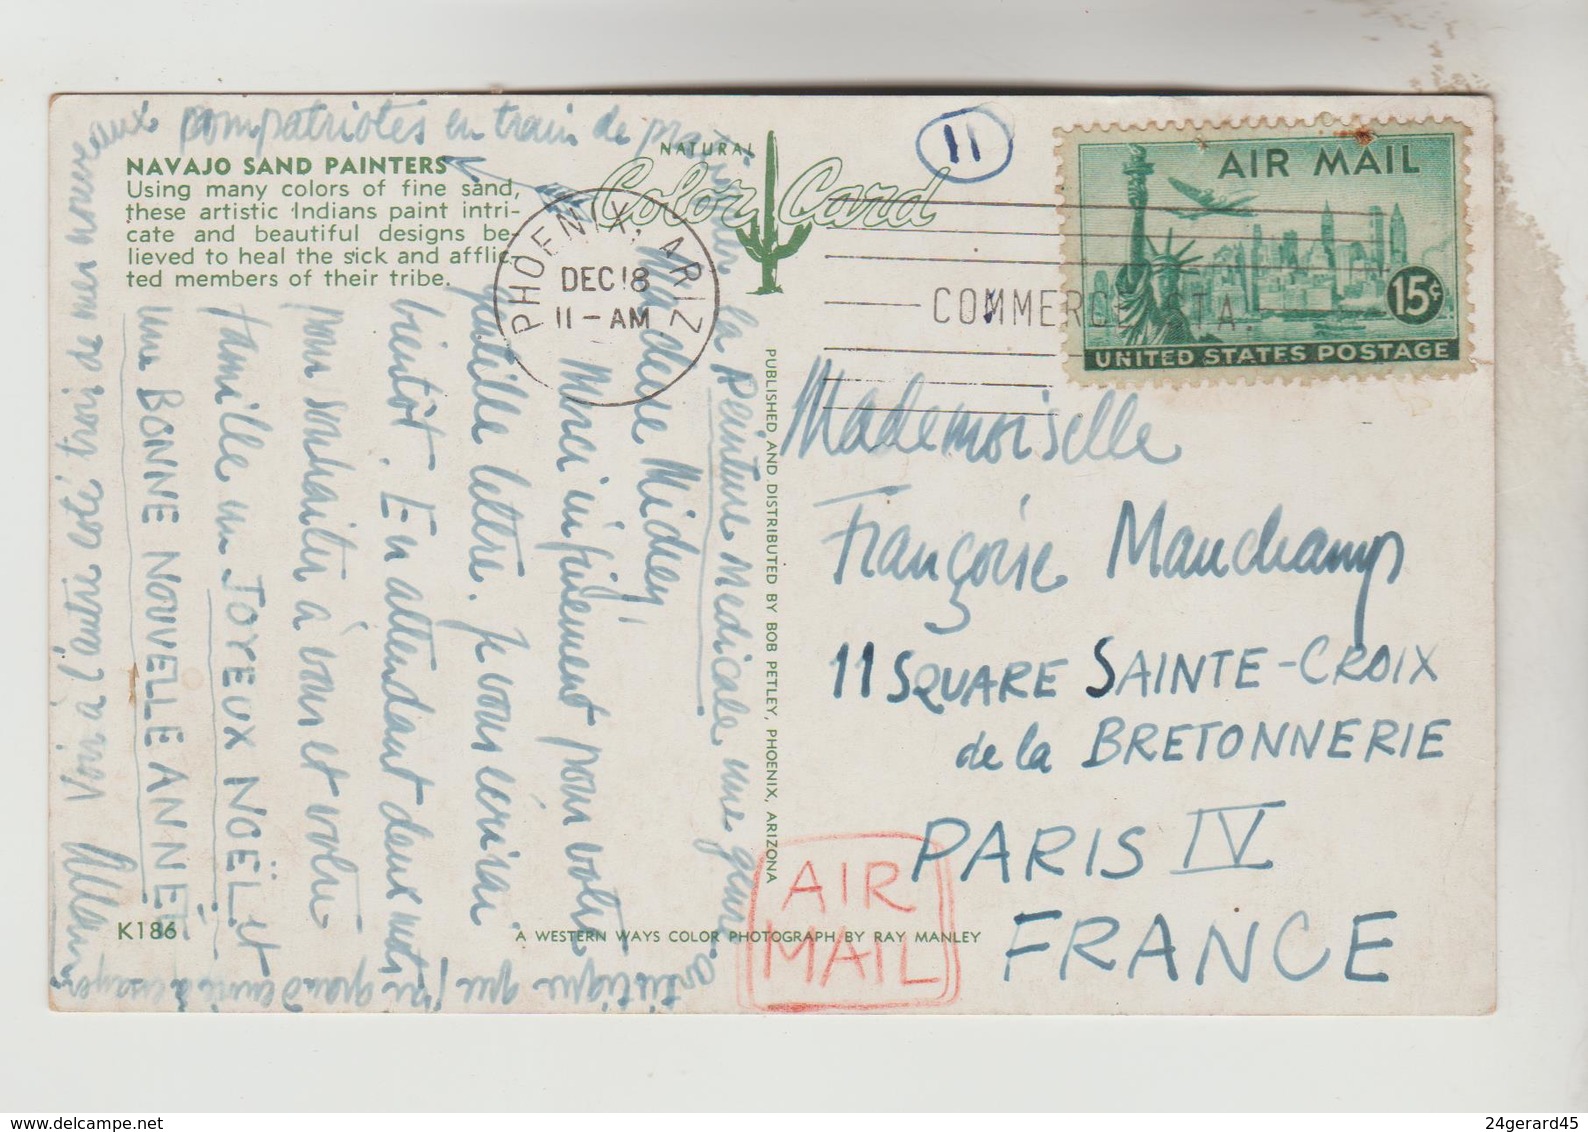 NAVAJO SAND PAINTERS
Using many colors of fine sand,
these artistic Indians paint intri-
cate and beautiful designs be-
lieved to heal the sick and afflic-
ted members of their tribe.
NATURAL
Color Card
11
PHOENIX, ARIZ
DEC 18
11-AM
COMMERCE STA.
AIR MAIL
15¢
UNITED STATES POSTAGE
Madame Midrey
Merci infiniment pour votre
gentille lettre. Je vous écrirai
bientôt. En attendant deux mots
pour souhaiter à vous et votre
famille un JOYEUX NOËL et
une BONNE NOUVELLE ANNÉE
Voir à l'autre coté trois de mes nouveaux
compatriotes en train de
la Peinture Medicale une
artistique que j'ai
PUBLISHED AND DISTRIBUTED BY BOB PETLEY, PHOENIX, ARIZONA
Mademoiselle
Françoise Mauchamp
11 SQUARE SAINTE-CROIX
de la BRETONNERIE
PARIS IV
FRANCE
AIR
MAIL
K186
A WESTERN WAYS COLOR PHOTOGRAPH BY RAY MANLEY
www.delcampe.net
24gerard45